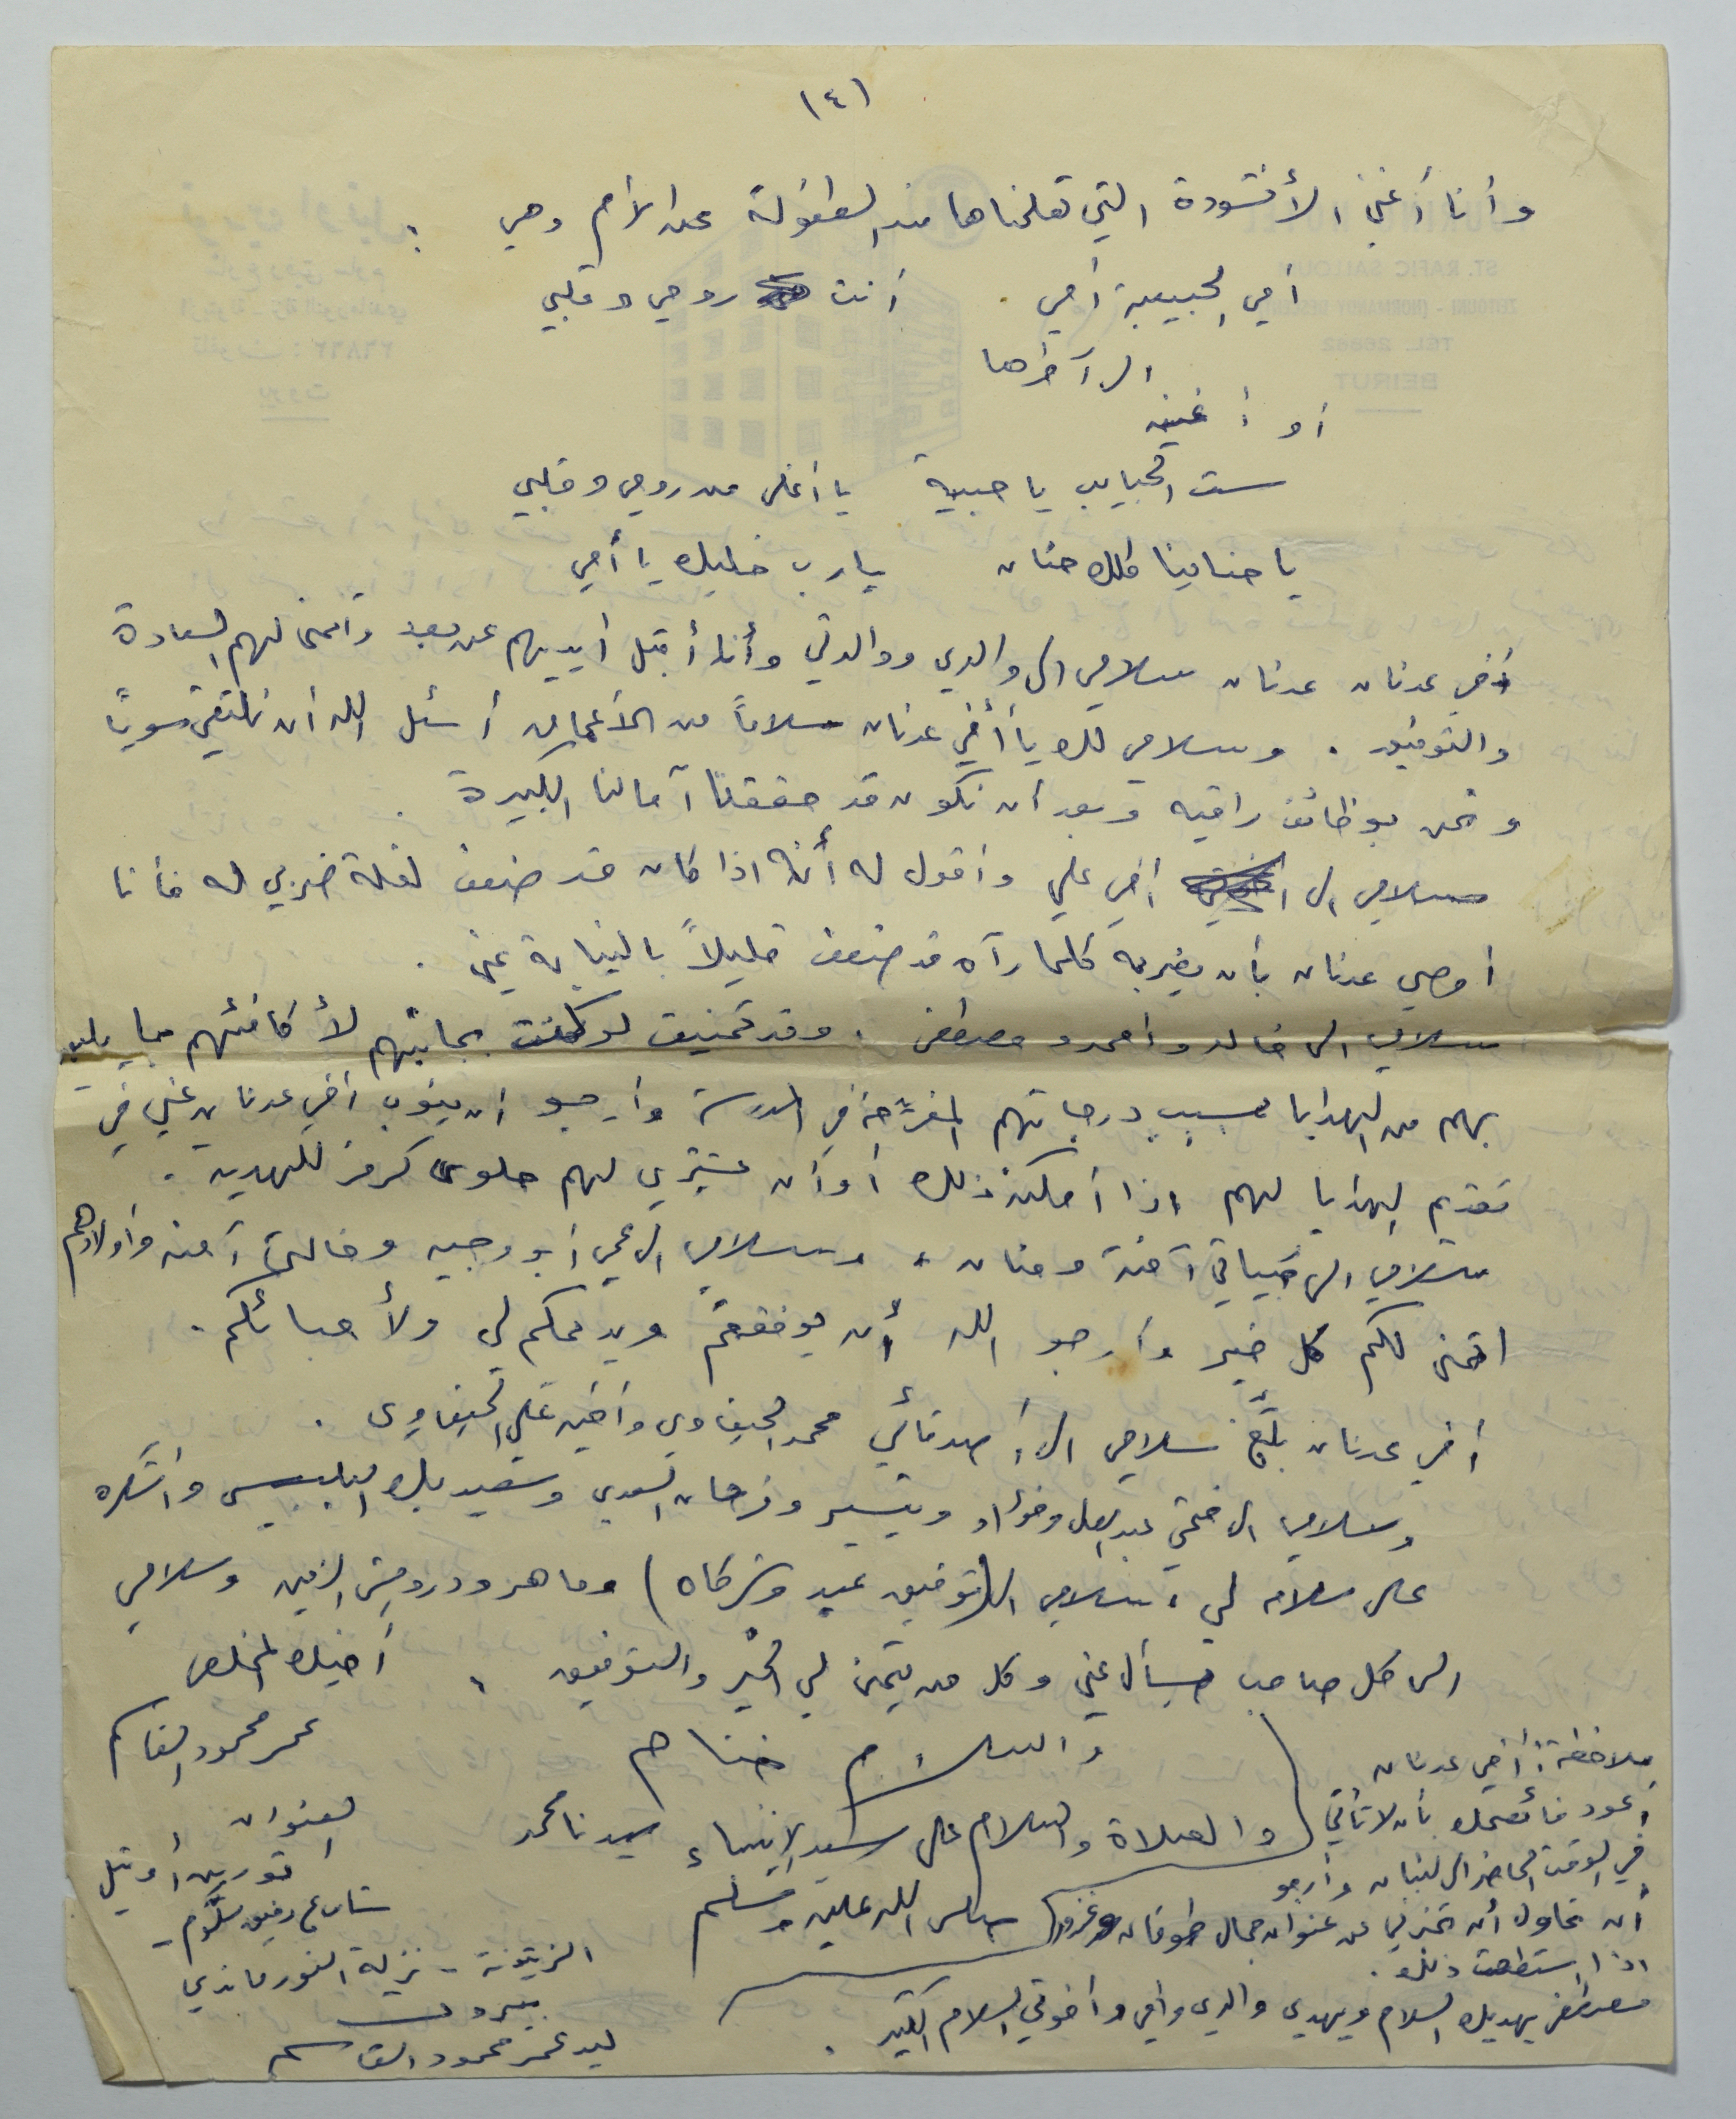 (٤)
وأنا أغني الأنشودة التي تعلمناها منذ الطفولة عن الأم وهي :
أمي الحبيبة أمي أنت روحي وقلبي
الى آخرها
أو أغنية
ست الحبايب يا حبيبة يا أغلى من روحي وقلبي
يا حنينا كلك حنان يارب خليك يا أمي
أخي عدنان عدنان سلامي الى والدي ووالدتي وأنا أقبل أيديهم عن بعد وأتمنى لهم السعادة
والتوفيق . وسلامي لك يا أخي عدنان سلاماً من الأعماق أسئل الله أن نلتقي سوياً
ونحن بوظائف راقيه وبعد ان نكون قد حققنا آمالنا الكبيرة .
سلامي الى أخي علي وأقول له أنه اذا كان قد ضعف لقلة ضربي له فأنا
اوصي عدنان بأن يضربه كلما رآه قد ضعف قليلاً بالنيابة عني .
سلامي الى خالد واحمد ومصطفى . وقد تمنيت لو كنت بجانبهم لأكافئهم بما يليق
بهم من الهدايا بسبب درجاتهم المفرحة في المدرسة وأرجو ان ينوب أخي عدنان عني في
تقديم الهدايا لهم اذا أمكنه ذلك أو أن يشتري لهم حلوى كرمز للهدية .
سلامي الى خيياتي آمنة وحنان ، وسلامي الى عمي أبو وجيه وخالتي آمنه وأولادهم
اتمنى لكم كل خير وأرجو الله أن يوفقكم ويديمكم لي ولأحبائكم .
أخي عدنان بلّغ سلامي الى أصدقائي محمد الحيفاوي وأخيه علي الحيفاوي .
وسلامي الى فتحي عبد العال وفؤاد وتيسير وفرحان السعدي وسعيد بك البلبيسي واشكره
على سلامه لي ، سلامي الى (توفيق عبيد وشركاه) وماهر ودرويش الزين وسلامي
الى كل صاحب يسأل عني وكل من يتمنى لي الخير والتوفيق ،
أخيك المخلص
عمر محمود القاسم
والسلام ختام
والصلاة والسلام على سيد الانبياء سيدنا محمد
صلى الله عليه وسلم
العنوان
شارع رفيق سلّوم -
الزيتونة - نزلة النورماندي
بيروت
ليد عمر محمود القاسم
ملاحظة : أخي عدنان
أعود فأنصحك بأن لا تأتي
في الوقت الحاضر الى لبنان وأرجو
أن تحاول أن تخبرني عن عنوان جمال طوقان وغيره
اذا استطعت ذلك .
مصطفى يهديك السلام ويهدي والدي وأمي وأخوتي السلام الكثير .